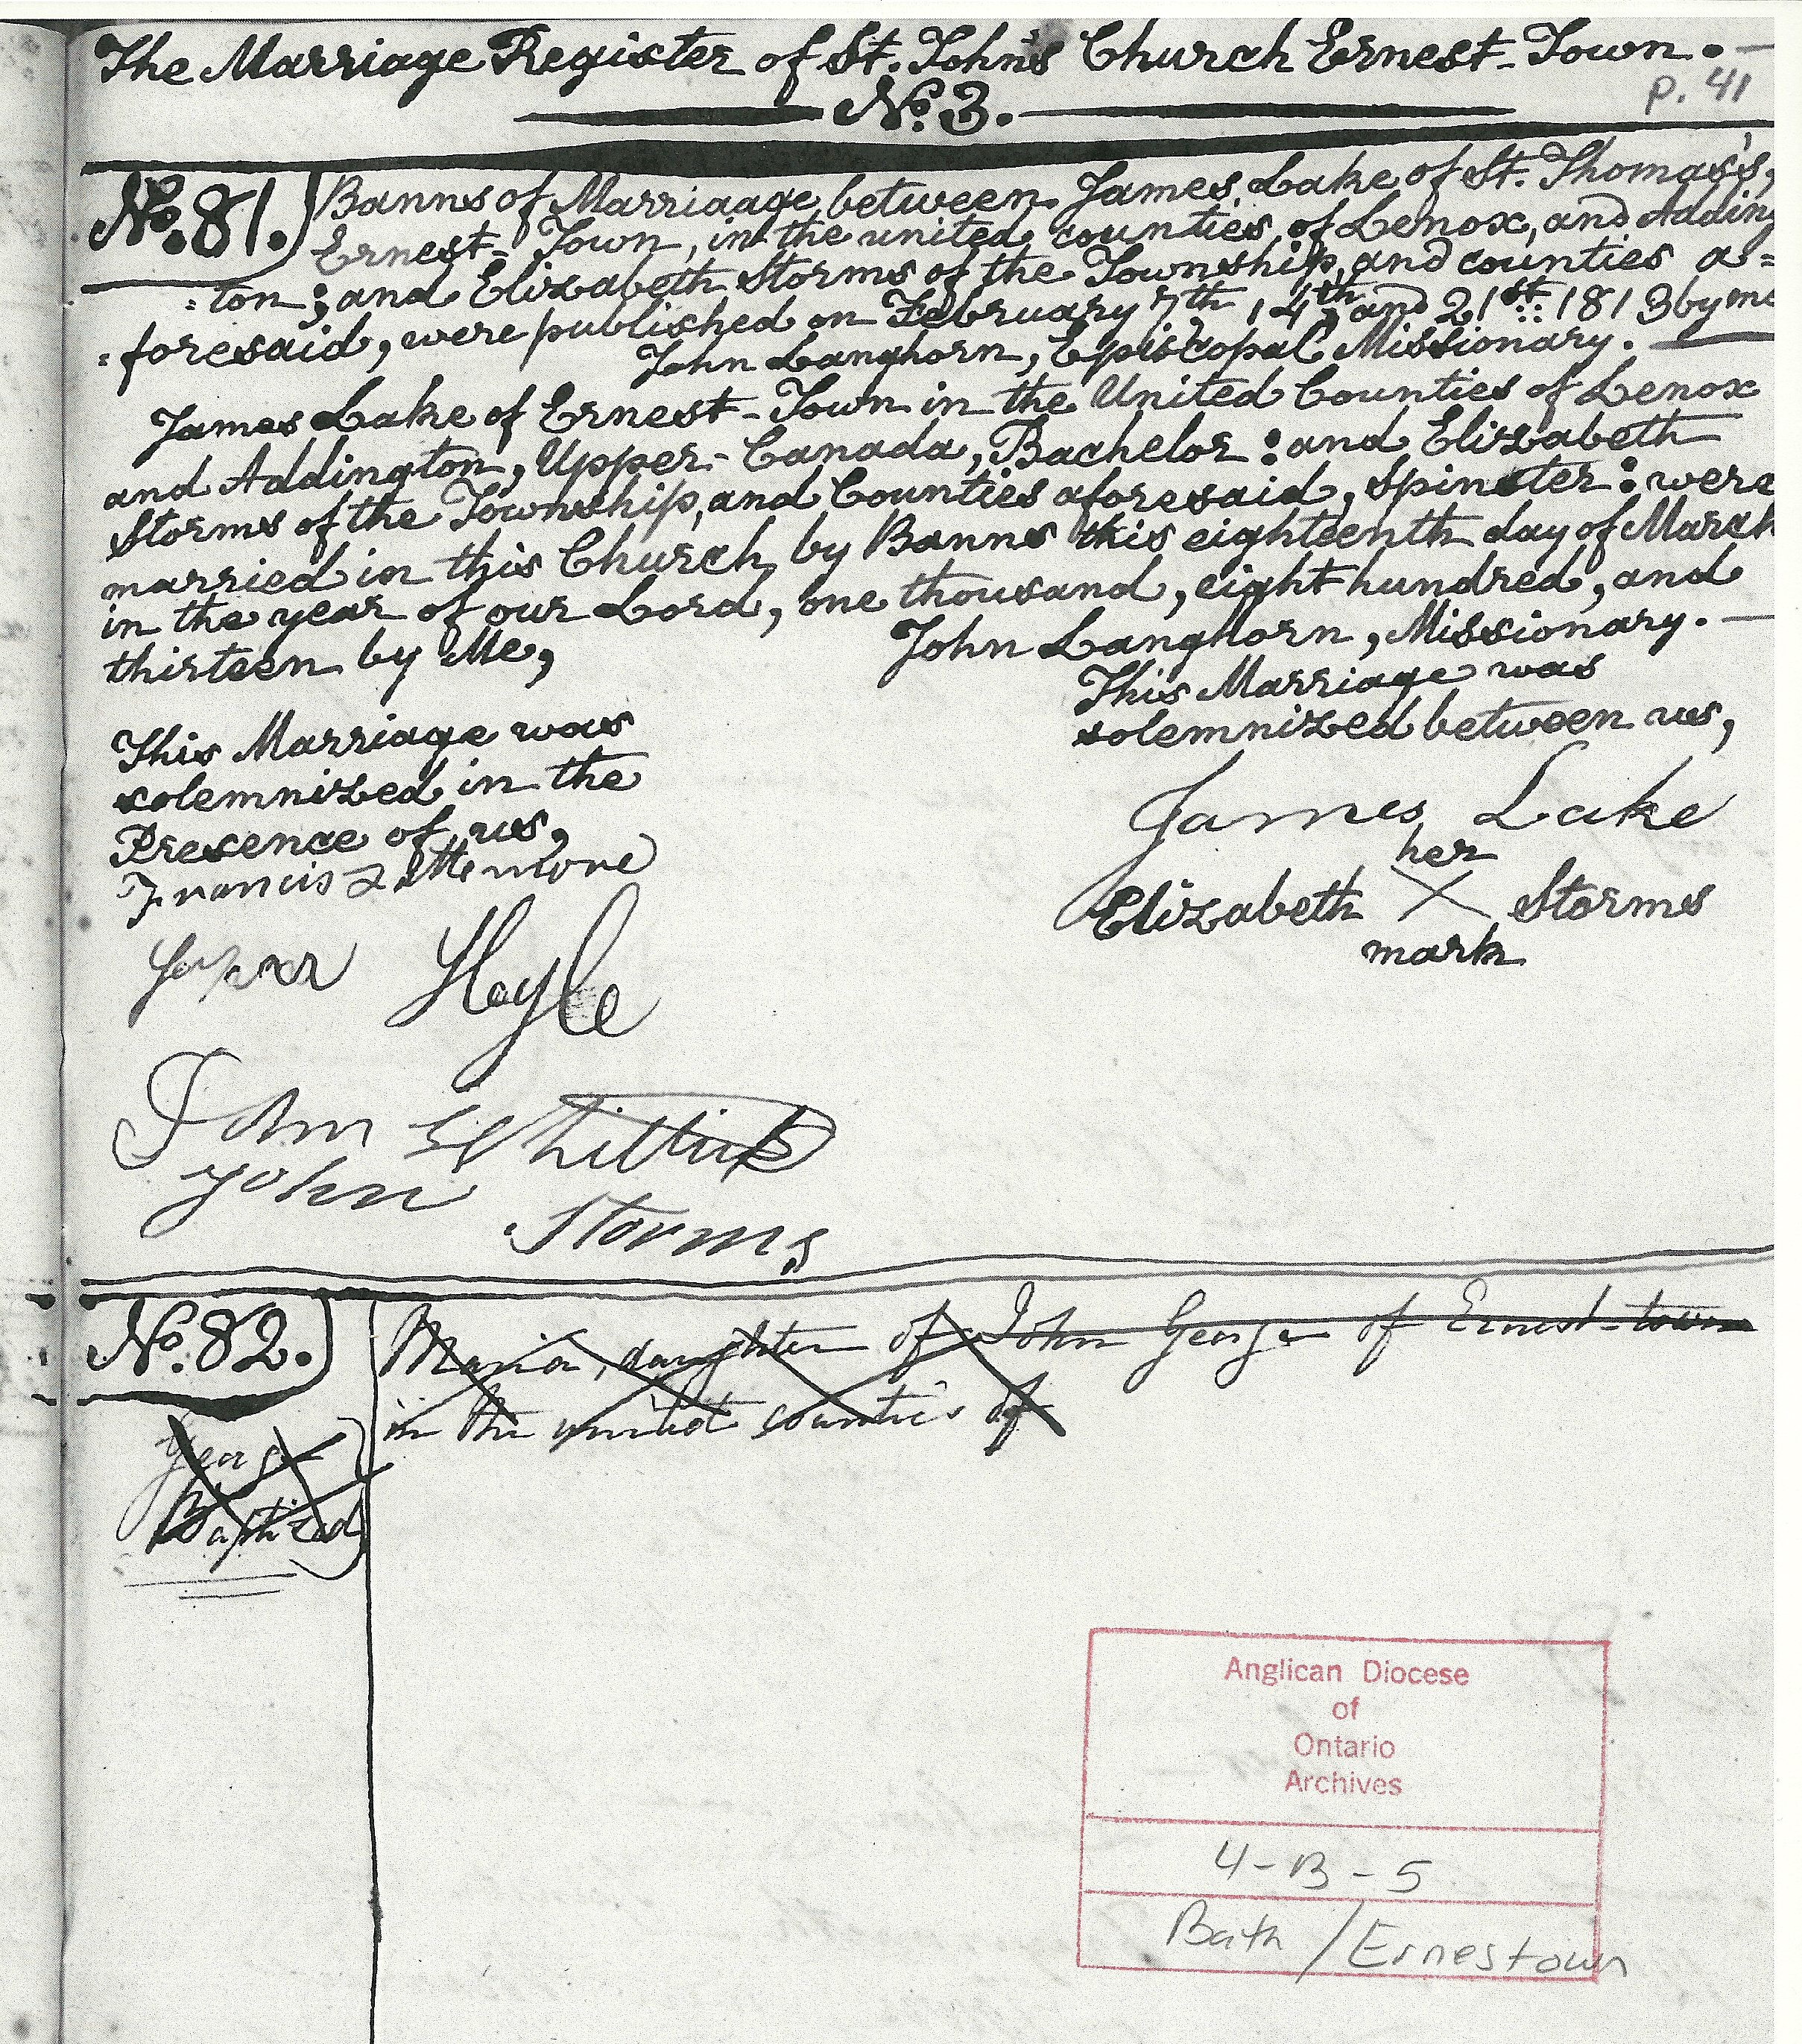 The Marriage Register of St. John's Church Ernest-Town.
No. 3.
p. 41
No. 81.
Banns of Marriaage between James Lake of St. Thomas's,
Ernest-Town, in the united counties of Lenox, and Adding
=ton; and Elizabeth Storms of the Township, and counties a=
=foresaid, were published on February 7th, 14th, and 21st: 1813 by me
John Langhorn, Episcopal Missionary.
James Lake of Ernest-Town in the United Counties of Lenox
and Addington, Upper-Canada, Bachelor: and Elizabeth
Storms of the Township, and Counties aforesaid, Spinster: were
married in this Church by Banns this eighteenth day of March
in the year of our Lord, one thousand, eight hundred, and
thirteen by Me,
John Langhorn, Missionary.
This Marriage was
solemnized between us,
James Lake
her
Elizabeth X Storms
mark
This Marriage was
solemnized in the
Presence of us,
Francis
Hoyle
John
John Storms
No. 82.
Maria, daughter of John George of Ernest-town
in the united counties of
George
Baptized
Anglican Diocese
of
Ontario
Archives
4-B-5
Bath / Ernestown